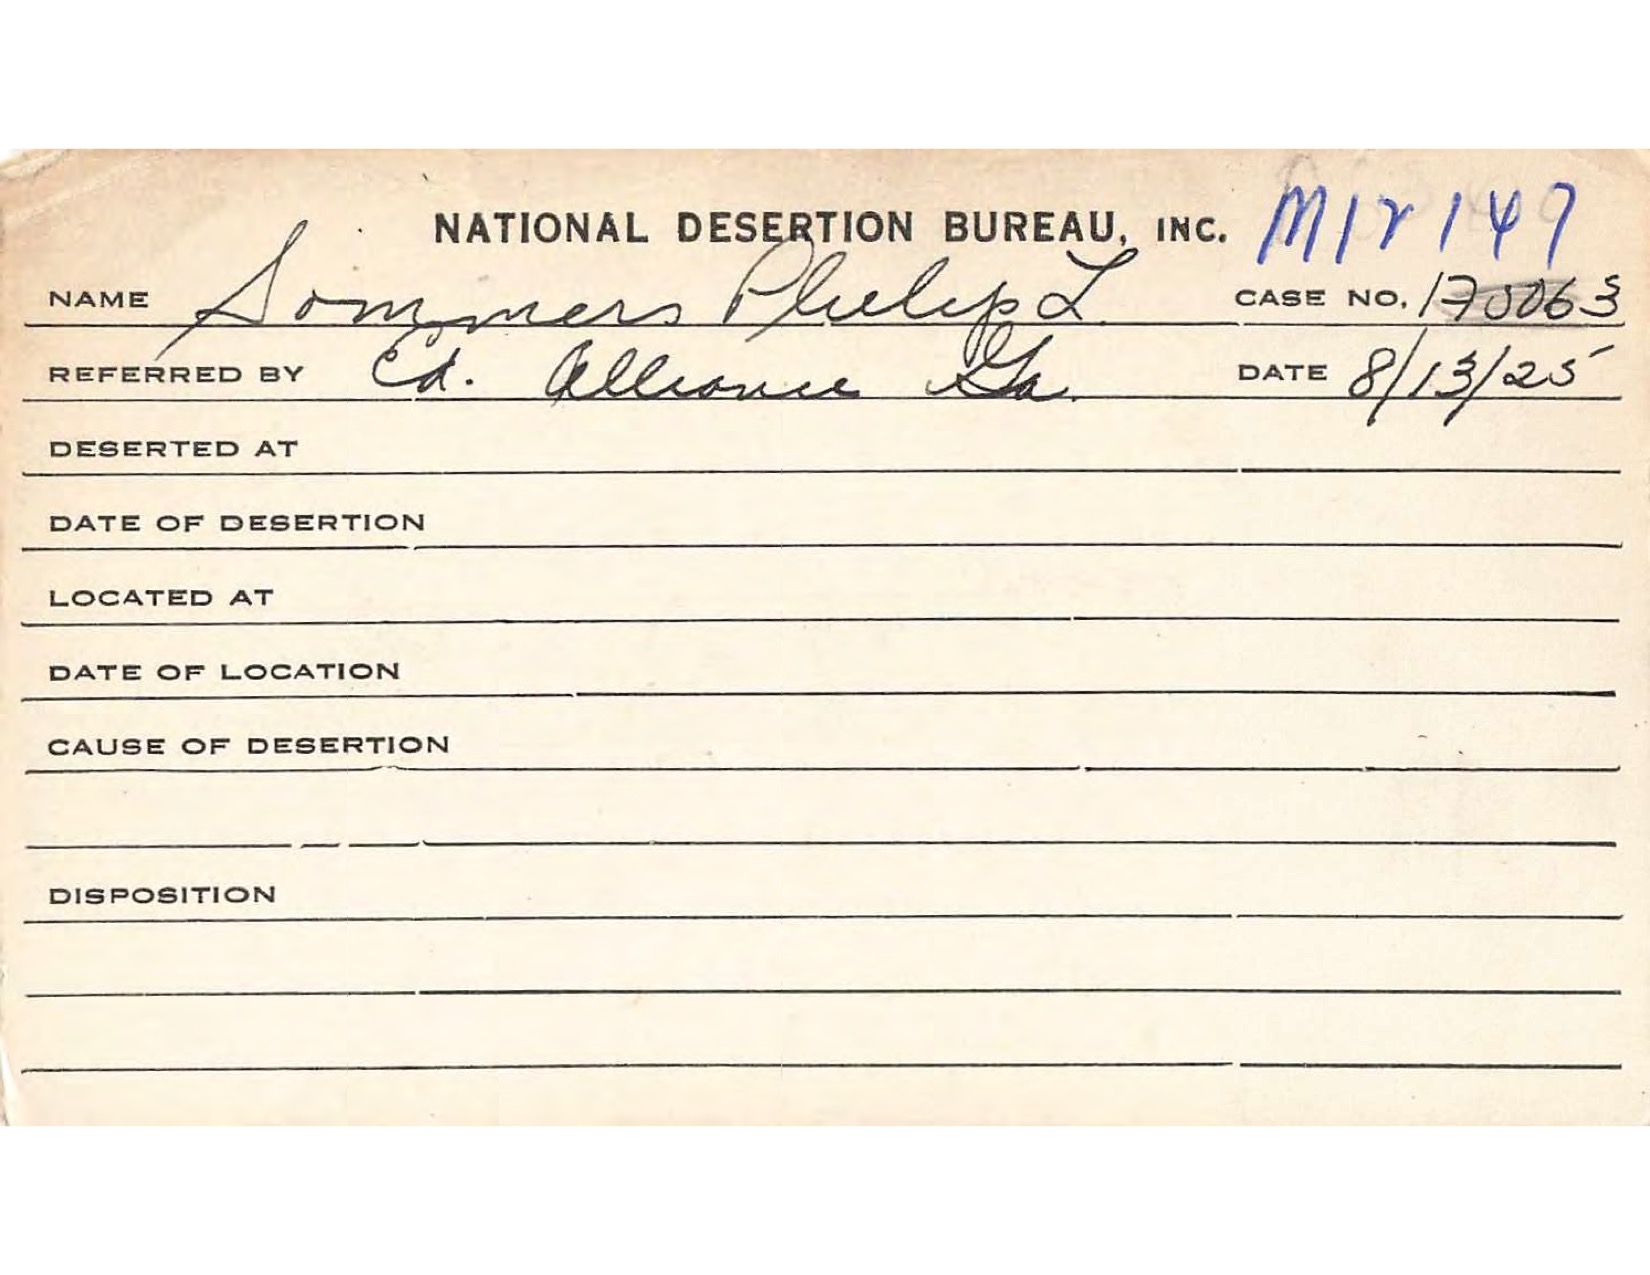 NATIONAL DESERTION BUREAU, INC. M12 147
NAME Sommers Philip L. CASE NO. 170063
REFERRED BY Ed. Alliance Ga. DATE 8/13/25
DESERTED AT
DATE OF DESERTION
LOCATED AT
DATE OF LOCATION
CAUSE OF DESERTION
DISPOSITION